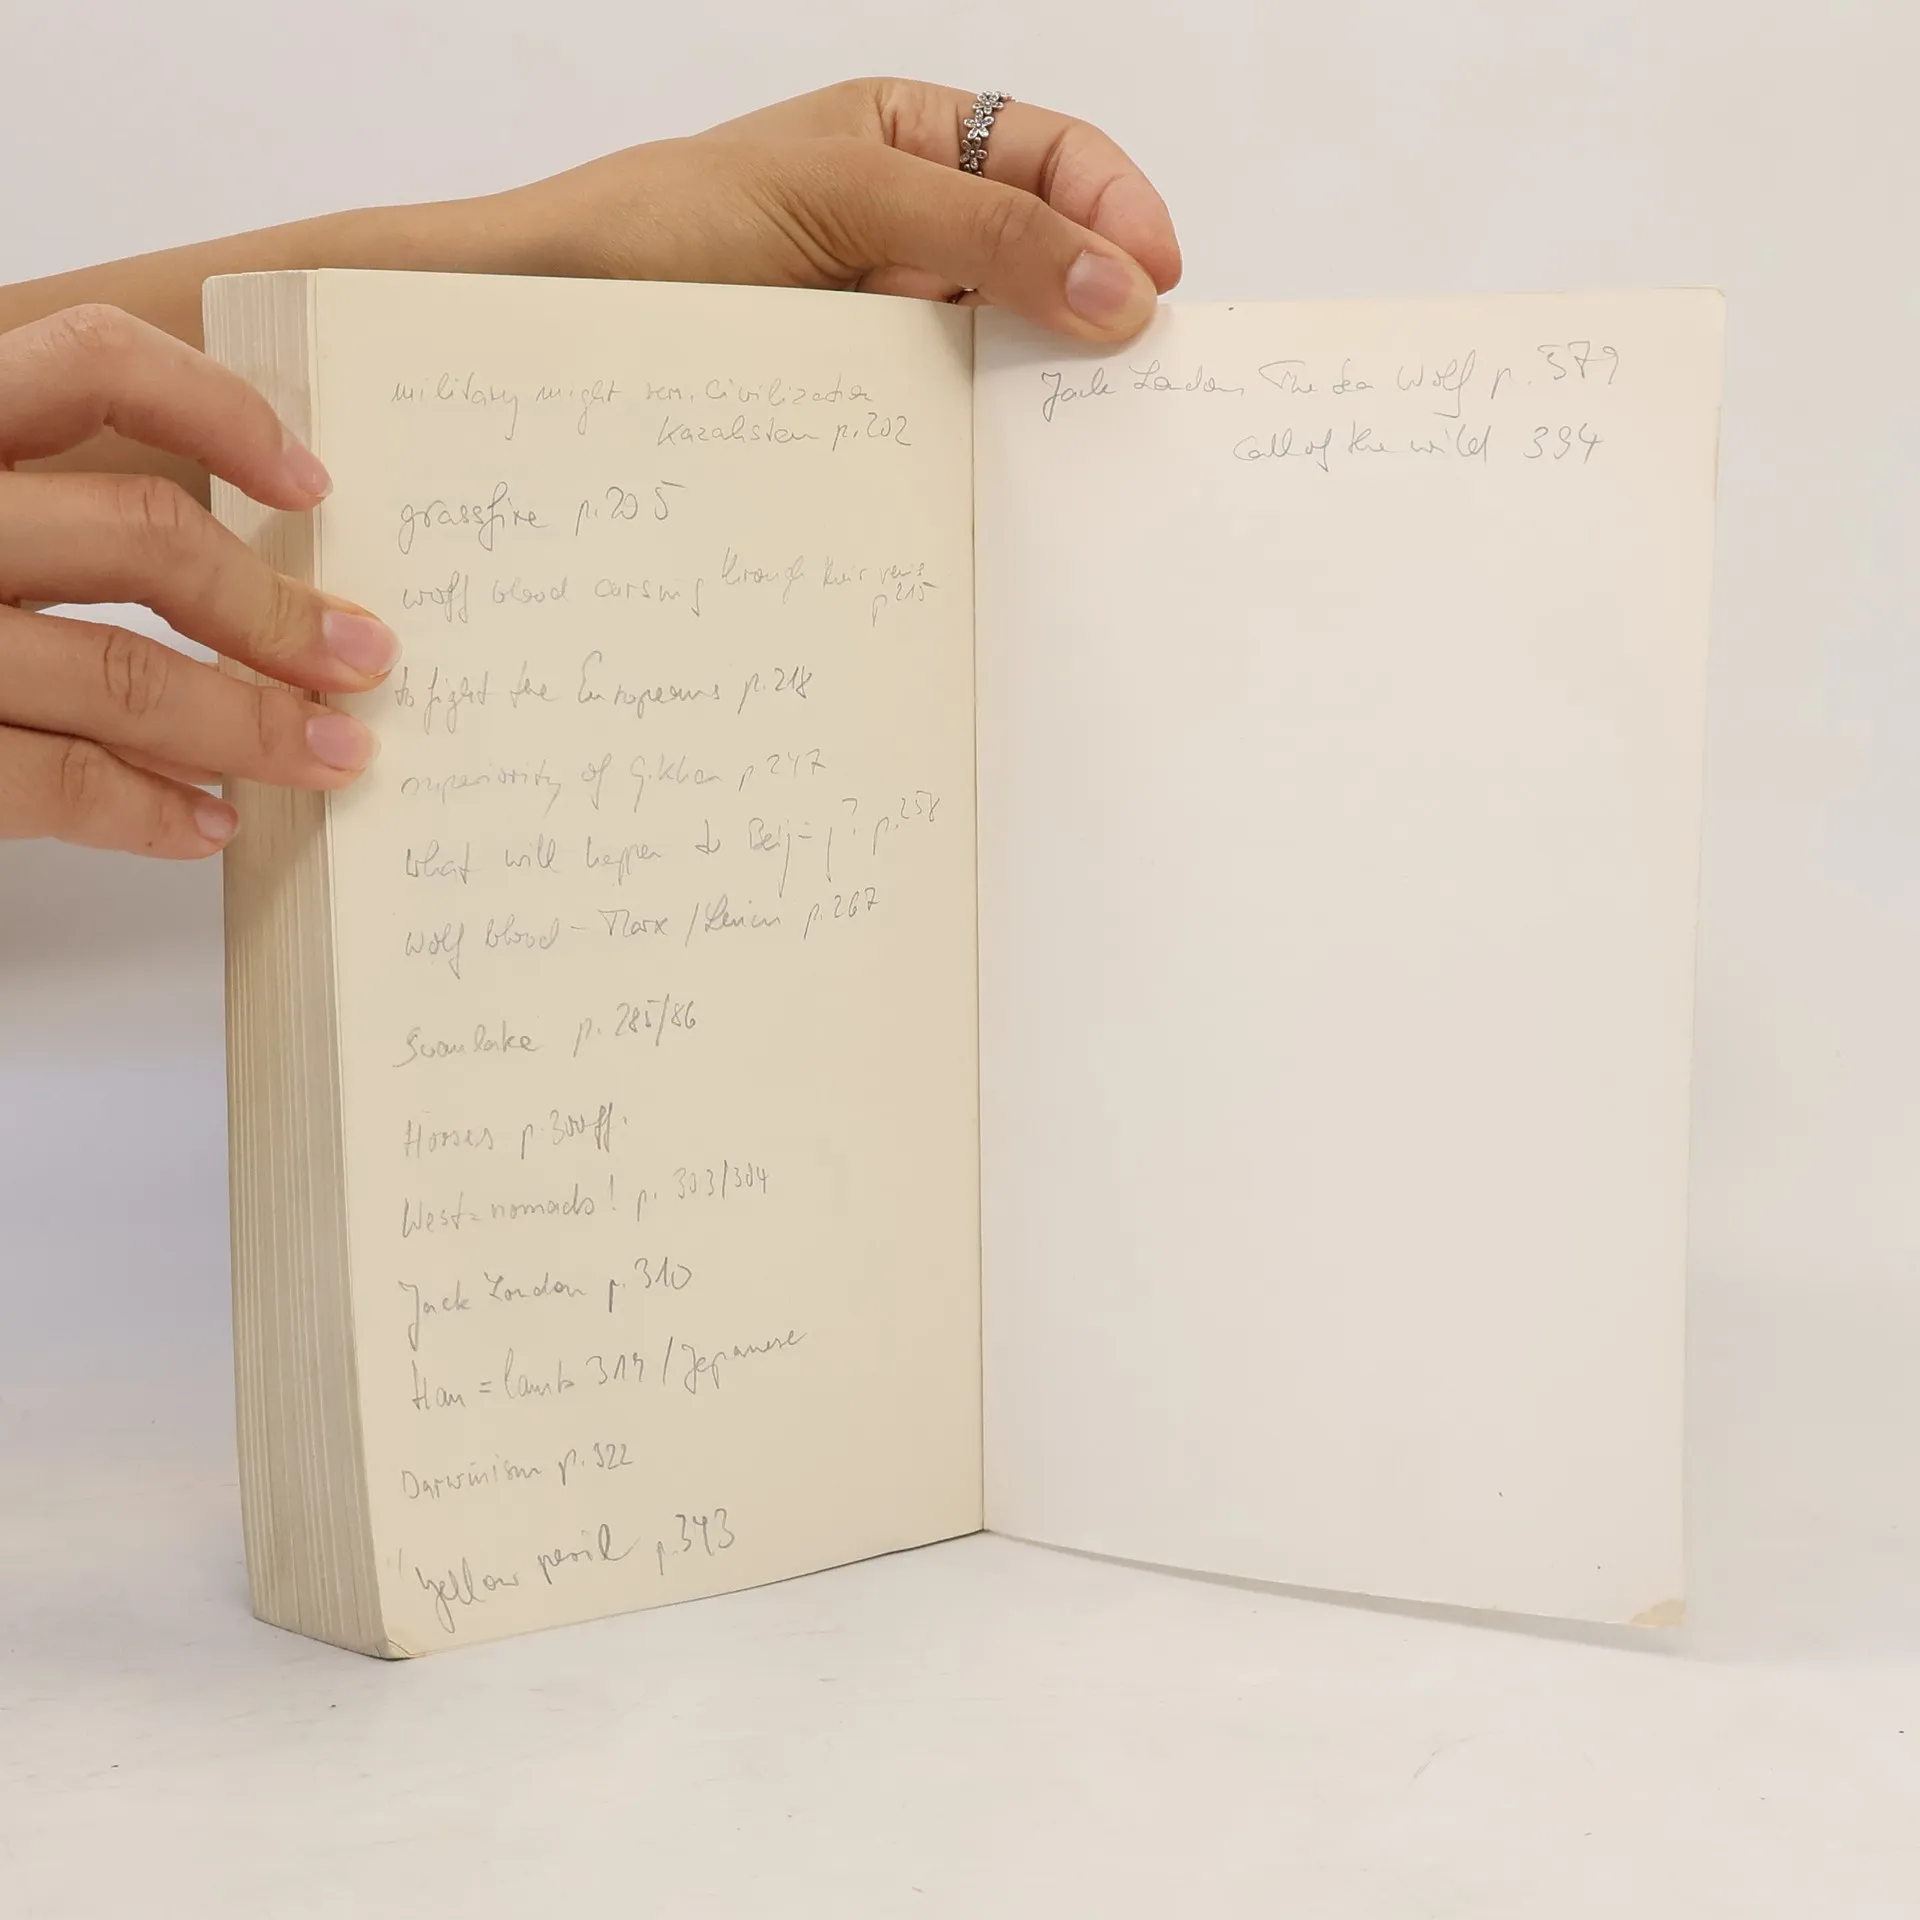 military might civilization
Kazahstan p.202
grassfire p.205
wolf blood cursing through their veins
p 215
to fight the Europeans p.218
superiority of G.Khan p 247
what will happen to Beijing? p.258
Wolf blood - Marx / Lenin p.267
Swanlake p. 285/86
Horses p.300ff.
West = nomads! p. 303/304
Jack London p. 310
Han = lamb / Japanese
Darwinism p. 322
"Yellow peril p.343
Jack London, The Sea Wolf p. 379
Call of the wild 394